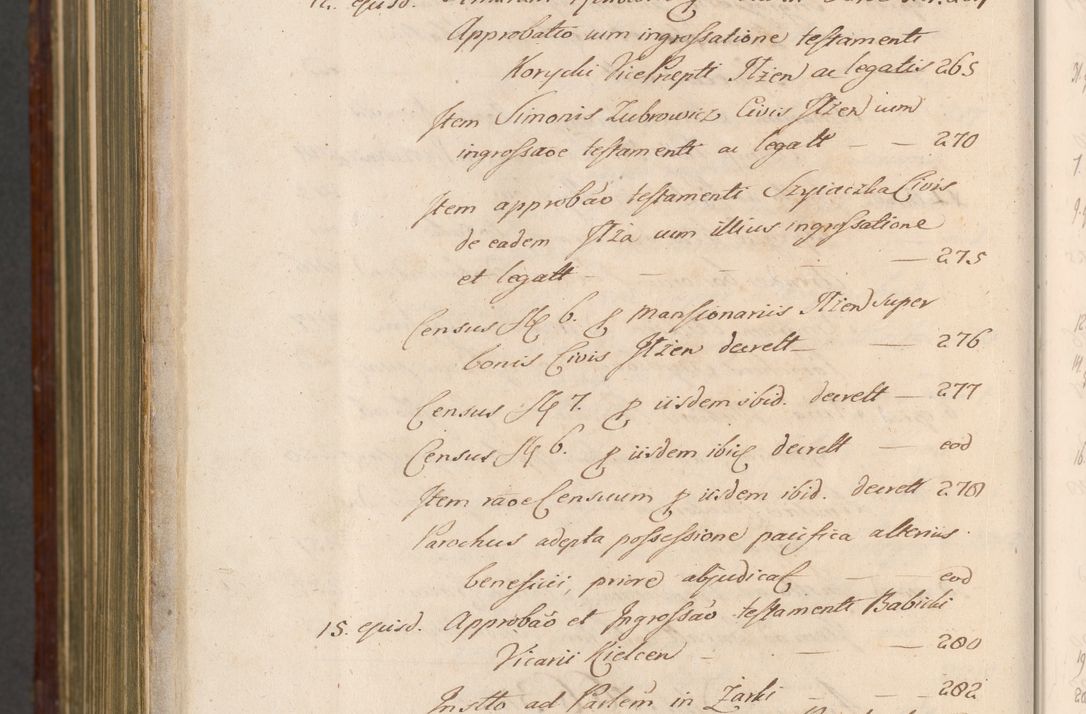 12. ejusd.
Approbatio cum ingrossatione testamenti
Korycki VicePraepti Ilżen ac legatis 265
Item Simonis Zubrowicz Civis Ilżen cum
ingrossaoe testamenti ac legatt — — 270
Item approbao testamenti Szyiaczka Civis
de eadem Ilża cum illius ingrossatione
et legatt — — — 275
Census 6. p mansionariis Ilżen super
bonis Civis Ilżen decrett — — 276
Census 7. p iisdem ibid. decrett — 277
Census 6. p iisdem ibid decrett — eod
Item raoe Censuum p iisdem ibid. decrett 278
Parochus adepta possessione pacifica alterius
beneficii, priore abjudicat — eod
15. ejusd. Approbao et Ingrossao testamenti Babicki
Vicarii Kielcen — — 280
Instto ad Parlem in Żarki — — 282